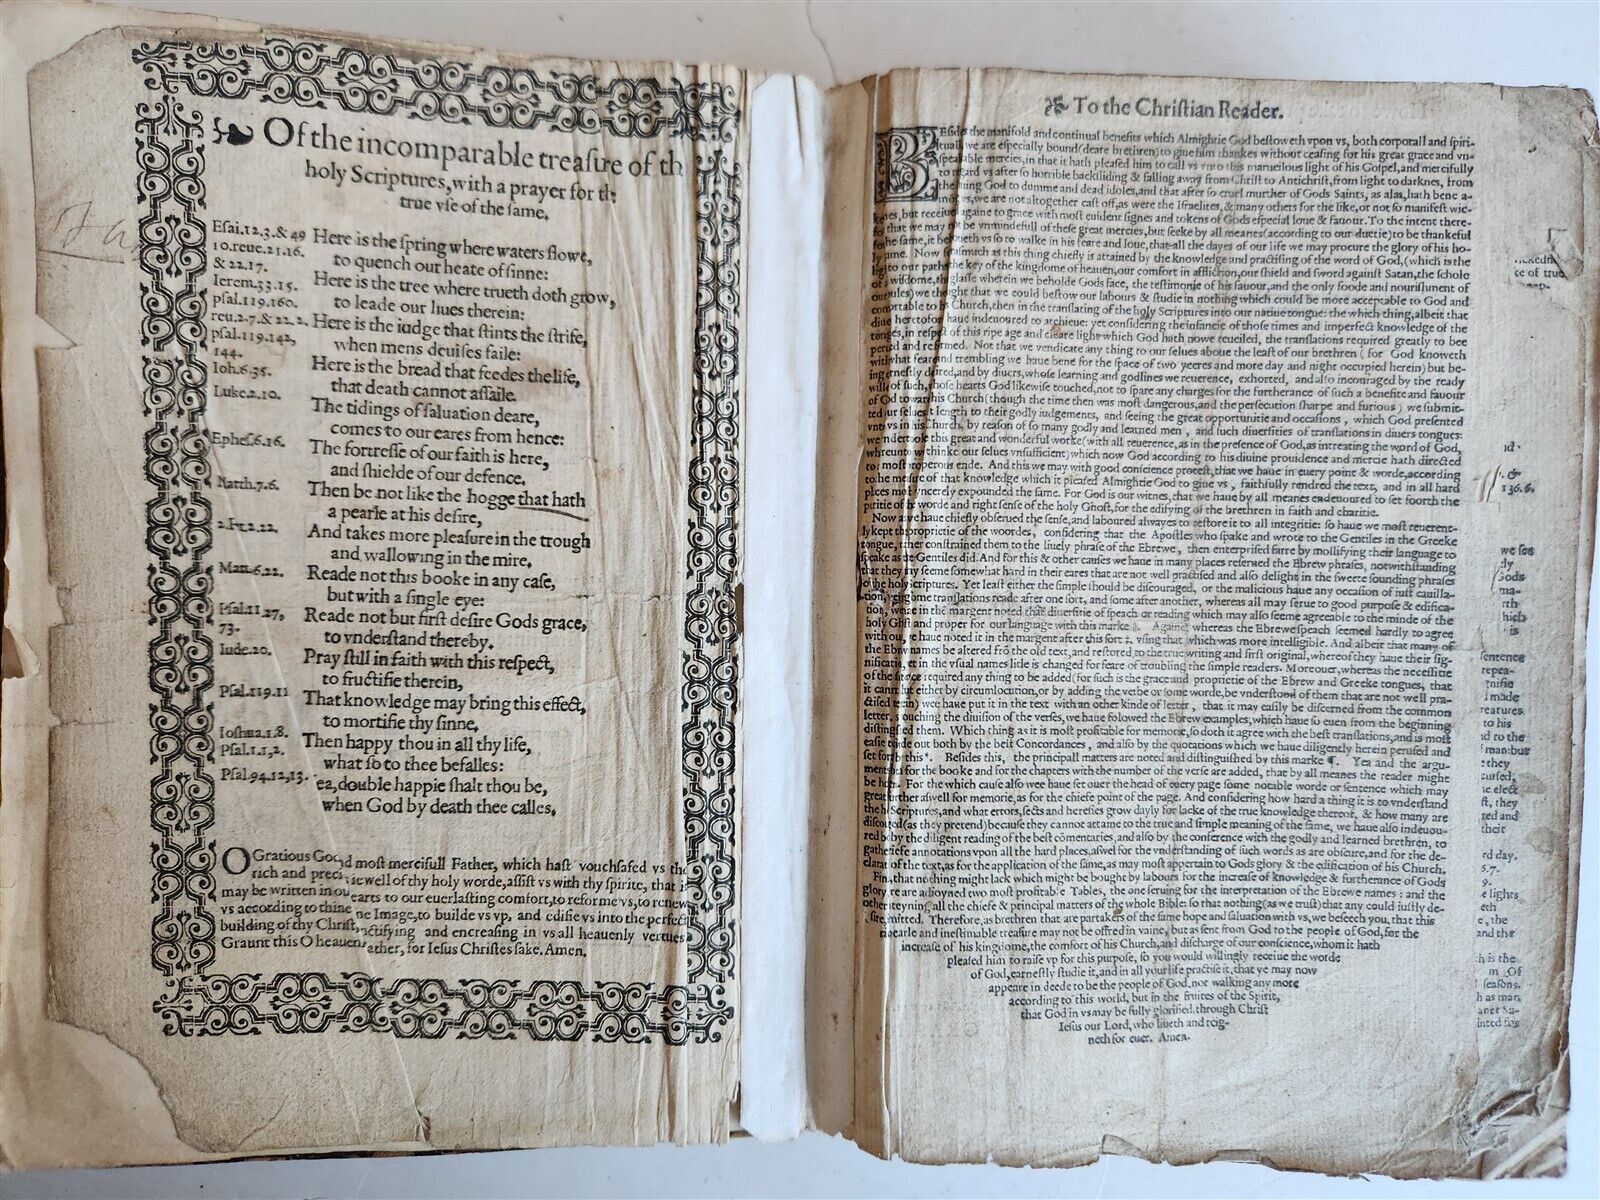 Of the incomparable treaſure of th
holy Scriptures, with a prayer for th
true vſe of the ſame.
Eſai.12.3.& 49
10.reue.21.16.
& 22.17.
Ierem.33.15.
pſal.119.160.
reu.2.7.& 22.2.
pſal.119.142,
144.
Ioh.6.35.
Luke.2.10.
Epheſ.6.16.
Matth.7.6.
2.Pet.2.22.
Matt.6.22.
Pſal.11.27,
73.
Iude.20.
Pſal.119.11
Ioſhua.1.8.
Pſal.1.1,2.
Pſal.94.12,13.
Here is the ſpring where waters flowe,
to quench our heate of ſinne:
Here is the tree where trueth doth grow,
to leade our liues therein:
Here is the iudge that ſtints the ſtrife,
when mens deuiſes faile:
Here is the bread that feedes the life,
that death cannot aſſaile.
The tidings of ſaluation deare,
comes to our eares from hence:
The fortreſſe of our faith is here,
and ſhielde of our defence.
Then be not like the hogge that hath
a pearle at his deſire,
And takes more pleaſure in the trough
and wallowing in the mire.
Reade not this booke in any caſe,
but with a ſingle eye:
Reade not but firſt deſire Gods grace,
to vnderſtand thereby.
Pray ſtill in faith with this reſpect,
to fructifie therein,
That knowledge may bring this effect,
to mortifie thy ſinne.
Then happy thou in all thy life,
what ſo to thee befalles:
ea, double happie ſhalt thou be,
when God by death thee calles.
O Gratious God moſt mercifull Father, which haſt vouchſafed vs the
rich and preci iewell of thy holy worde, aſſiſt vs with thy ſpirite, that i
may be written in ou earts to our euerlaſting comfort, to reforme vs, to renew
vs according to thine ne Image, to builde vs vp, and edifie vs into the perfect
building of thy Chriſt, nctifying and encreaſing in vs all heauenly vertues
Graunt this O heauen ather, for Ieſus Chriſtes ſake. Amen.
To the Chriſtian Reader.
BEſides the manifold and continual benefits which Almightie God beſtoweth vpon vs, both corporall and ſpiri-
tuall, we are eſpecially bound (deare brethren) to giue him thankes without ceaſing for his great grace and vn-
ſpeakable mercies, in that it hath pleaſed him to call vs vnto this maruelous light of his Goſpel, and mercifully
to regard vs after ſo horrible backſliding & falling away from Chriſt to Antichriſt, from light to darknes, from
the liuing God to dumme and dead idoles, and that after ſo cruel murther of Gods Saints, as alas, hath bene a-
mong vs, we are not altogether caſt off, as were the Iſraelites, & many others for the like, or not ſo manifeſt wic-
kenes, but receiued againe to grace with moſt euident ſignes and tokens of Gods eſpecial loue & fauour. To the intent there-
for that we may not be vnmindefull of theſe great mercies, but ſeeke by all meanes (according to our duetie) to be thankeful
for he ſame, it behoueth vs ſo to walke in his feare and loue, that all the dayes of our life we may procure the glory of his ho-
ly ame. Now foraſmuch as this thing chiefly is attained by the knowledge and practiſing of the word of God, (which is the
light to our paths, the key of the kingdome of heauen, our comfort in affliction, our ſhield and ſword againſt Satan, the ſchole
of wiſdome, the glaſſe wherein we beholde Gods face, the teſtimonie of his fauour, and the only foode and nouriſhment of
our ſoules) we thought that we could beſtow our labours & ſtudie in nothing which could be more acceptable to God and
comfortable to his Church, then in the tranſlating of the holy Scriptures into our natiue tongue: the which thing, albeit that
diue heretofore haue indeuoured to archieue: yet conſidering the infancie of thoſe times and imperfect knowledge of the
tonges, in reſpect of this ripe age and cleare light which God hath nowe reueiled, the tranſlations required greatly to bee
peruſed and reformed. Not that we vendicate any thing to our ſelues aboue the leaſt of our brethren (for God knoweth
with what feare and trembling we haue bene for the ſpace of two yeeres and more day and night occupied herein) but be-
ing erneſtly deſired, and by diuers, whoſe learning and godlines we reuerence, exhorted, and alſo incouraged by the ready
willes of ſuch, whoſe hearts God likewiſe touched, not to ſpare any charges for the furtherance of ſuch a benefite and fauour
of God toward his Church (though the time then was moſt dangerous, and the perſecution ſharpe and furious) we ſubmit-
ted our ſelues at length to their godly iudgements, and ſeeing the great opportunitie and occaſions, which God preſented
vnto vs in his Church, by reaſon of ſo many godly and learned men, and ſuch diuerſities of tranſlations in diuers tongues:
we vndertooke this great and wonderful worke (with all reuerence, as in the preſence of God, as intreating the word of God,
whereunto we thinke our ſelues vnſufficient) which now God according to his diuine prouidence and mercie hath directed
to moſt proſperous ende. And this we may with good conſcience proteſt, that we haue in euery point & worde, according
to the meaſure of that knowledge which it pleaſed Almightie God to giue vs, faithfully rendred the text, and in all hard
places moſt ſyncerely expounded the ſame. For God is our witnes, that we haue by all meanes endeuoured to ſet foorth the
puritie of the worde and right ſenſe of the holy Ghoſt, for the edifying of the brethren in faith and charitie.
Now as we haue chiefly obſerued the ſenſe, and laboured alwayes to reſtore it to all integritie: ſo haue we moſt reuerent-
ly kept the proprietie of the woordes, conſidering that the Apoſtles who ſpake and wrote to the Gentiles in the Greeke
tongue, rather conſtrained them to the liuely phraſe of the Ebrewe, then enterpriſed farre by mollifying their language to
ſpeake as the Gentiles did. And for this & other cauſes we haue in many places reſerued the Ebrew phraſes, notwithſtanding
that they may ſeeme ſomewhat hard in their eares that are not well practiſed and alſo delight in the ſweete ſounding phraſes
of the holy Scriptures. Yet leaſt either the ſimple ſhould be diſcouraged, or the malicious haue any occaſion of iuſt cauilla-
tion, ſeeing ſome tranſlations reade after one ſort, and ſome after another, whereas all may ſerue to good purpoſe & edifica-
tion, we haue in the margent noted that diuerſitie of ſpeach or reading which may alſo ſeeme agreeable to the minde of the
holy Ghoſt and proper for our language with this marke . Againe whereas the Ebrewe ſpeach ſeemed hardly to agree
with ours, we haue noted it in the margent after this ſort ‡, vſing that which was more intelligible. And albeit that many of
the Ebrew names be altered frō the old text, and reſtored to the true writing and firſt original, whereof they haue their ſig-
nificatio, yet in the vſual names litle is changed for feare of troubling the ſimple readers. Moreouer, whereas the neceſſitie
of the ſentence required any thing to be added (for ſuch is the grace and proprietie of the Ebrew and Greeke tongues, that
it cannot but either by circumlocution, or by adding the verbe or ſome worde, be vnderſtood of them that are not well pra-
ctiſed therin) wee haue put it in the text with an other kinde of letter, that it may eaſily be diſcerned from the common
letter. As touching the diuiſion of the verſes, we haue folowed the Ebrew examples, which haue ſo euen from the beginning
diſtinguiſhed them. Which thing as it is moſt profitable for memorie, ſo doth it agree with the beſt tranſlations, and is moſt
eaſie to finde out both by the beſt Concordances, and alſo by the quotations which we haue diligently herein peruſed and
ſet forth by this *. Beſides this, the principall matters are noted and diſtinguiſhed by this marke ¶. Yea and the argu-
ments both for the booke and for the chapters with the number of the verſe are added, that by all meanes the reader might
be holpen. For the which cauſe alſo wee haue ſet ouer the head of euery page ſome notable worde or ſentence which may
greatly further aſwell for memorie, as for the chiefe point of the page. And conſidering how hard a thing it is to vnderſtand
the holy Scriptures, and what errors, ſects and hereſies grow dayly for lacke of the true knowledge thereof, & how many are
diſcouraged (as they pretend) becauſe they cannot attaine to the true and ſimple meaning of the ſame, we haue alſo indeuou-
red both by the diligent reading of the beſt cōmentaries, and alſo by the conference with the godly and learned brethren, to
gather briefe annotations vpon all the hard places, aſwel for the vnderſtanding of ſuch words as are obſcure, and for the de-
claration of the text, as for the application of the ſame, as may moſt appertain to Gods glory & the edification of his Church.
Finally, that nothing might lack which might be bought by labours for the increaſe of knowledge & furtherance of Gods
glory, there are adioyned two moſt profitable Tables, the one ſeruing for the interpretation of the Ebrewe names: and the
other conteyning all the chiefe & principal matters of the whole Bible: ſo that nothing (as we truſt) that any could iuſtly de-
ſire, is omitted. Therefore, as brethren that are partakers of the ſame hope and ſaluation with vs, we beſeech you, that this
rich pearle and ineſtimable treaſure may not be offred in vaine, but as ſent from God to the people of God, for the
increaſe of his kingdome, the comfort of his Church, and diſcharge of our conſcience, whom it hath
pleaſed him to raiſe vp for this purpoſe, ſo you would willingly receiue the worde
of God, earneſtly ſtudie it, and in all your life practiſe it, that ye may now
appeare in deede to be the people of God, not walking any more
according to this world, but in the fruites of the Spirit,
that God in vs may be fully glorified through Chriſt
Ieſus our Lord, who liueth and reig-
neth for euer. Amen.
ke of true
136.6.
we ſee
Gods
ſentence
repea-
made
reatures
to his
nd to the
man:but
they
curſed,
he elect
ſt, they
ted and
their
rd day.
lights
eth
e, the
and the
h is the
m .Of
ſeaſons.
h as man